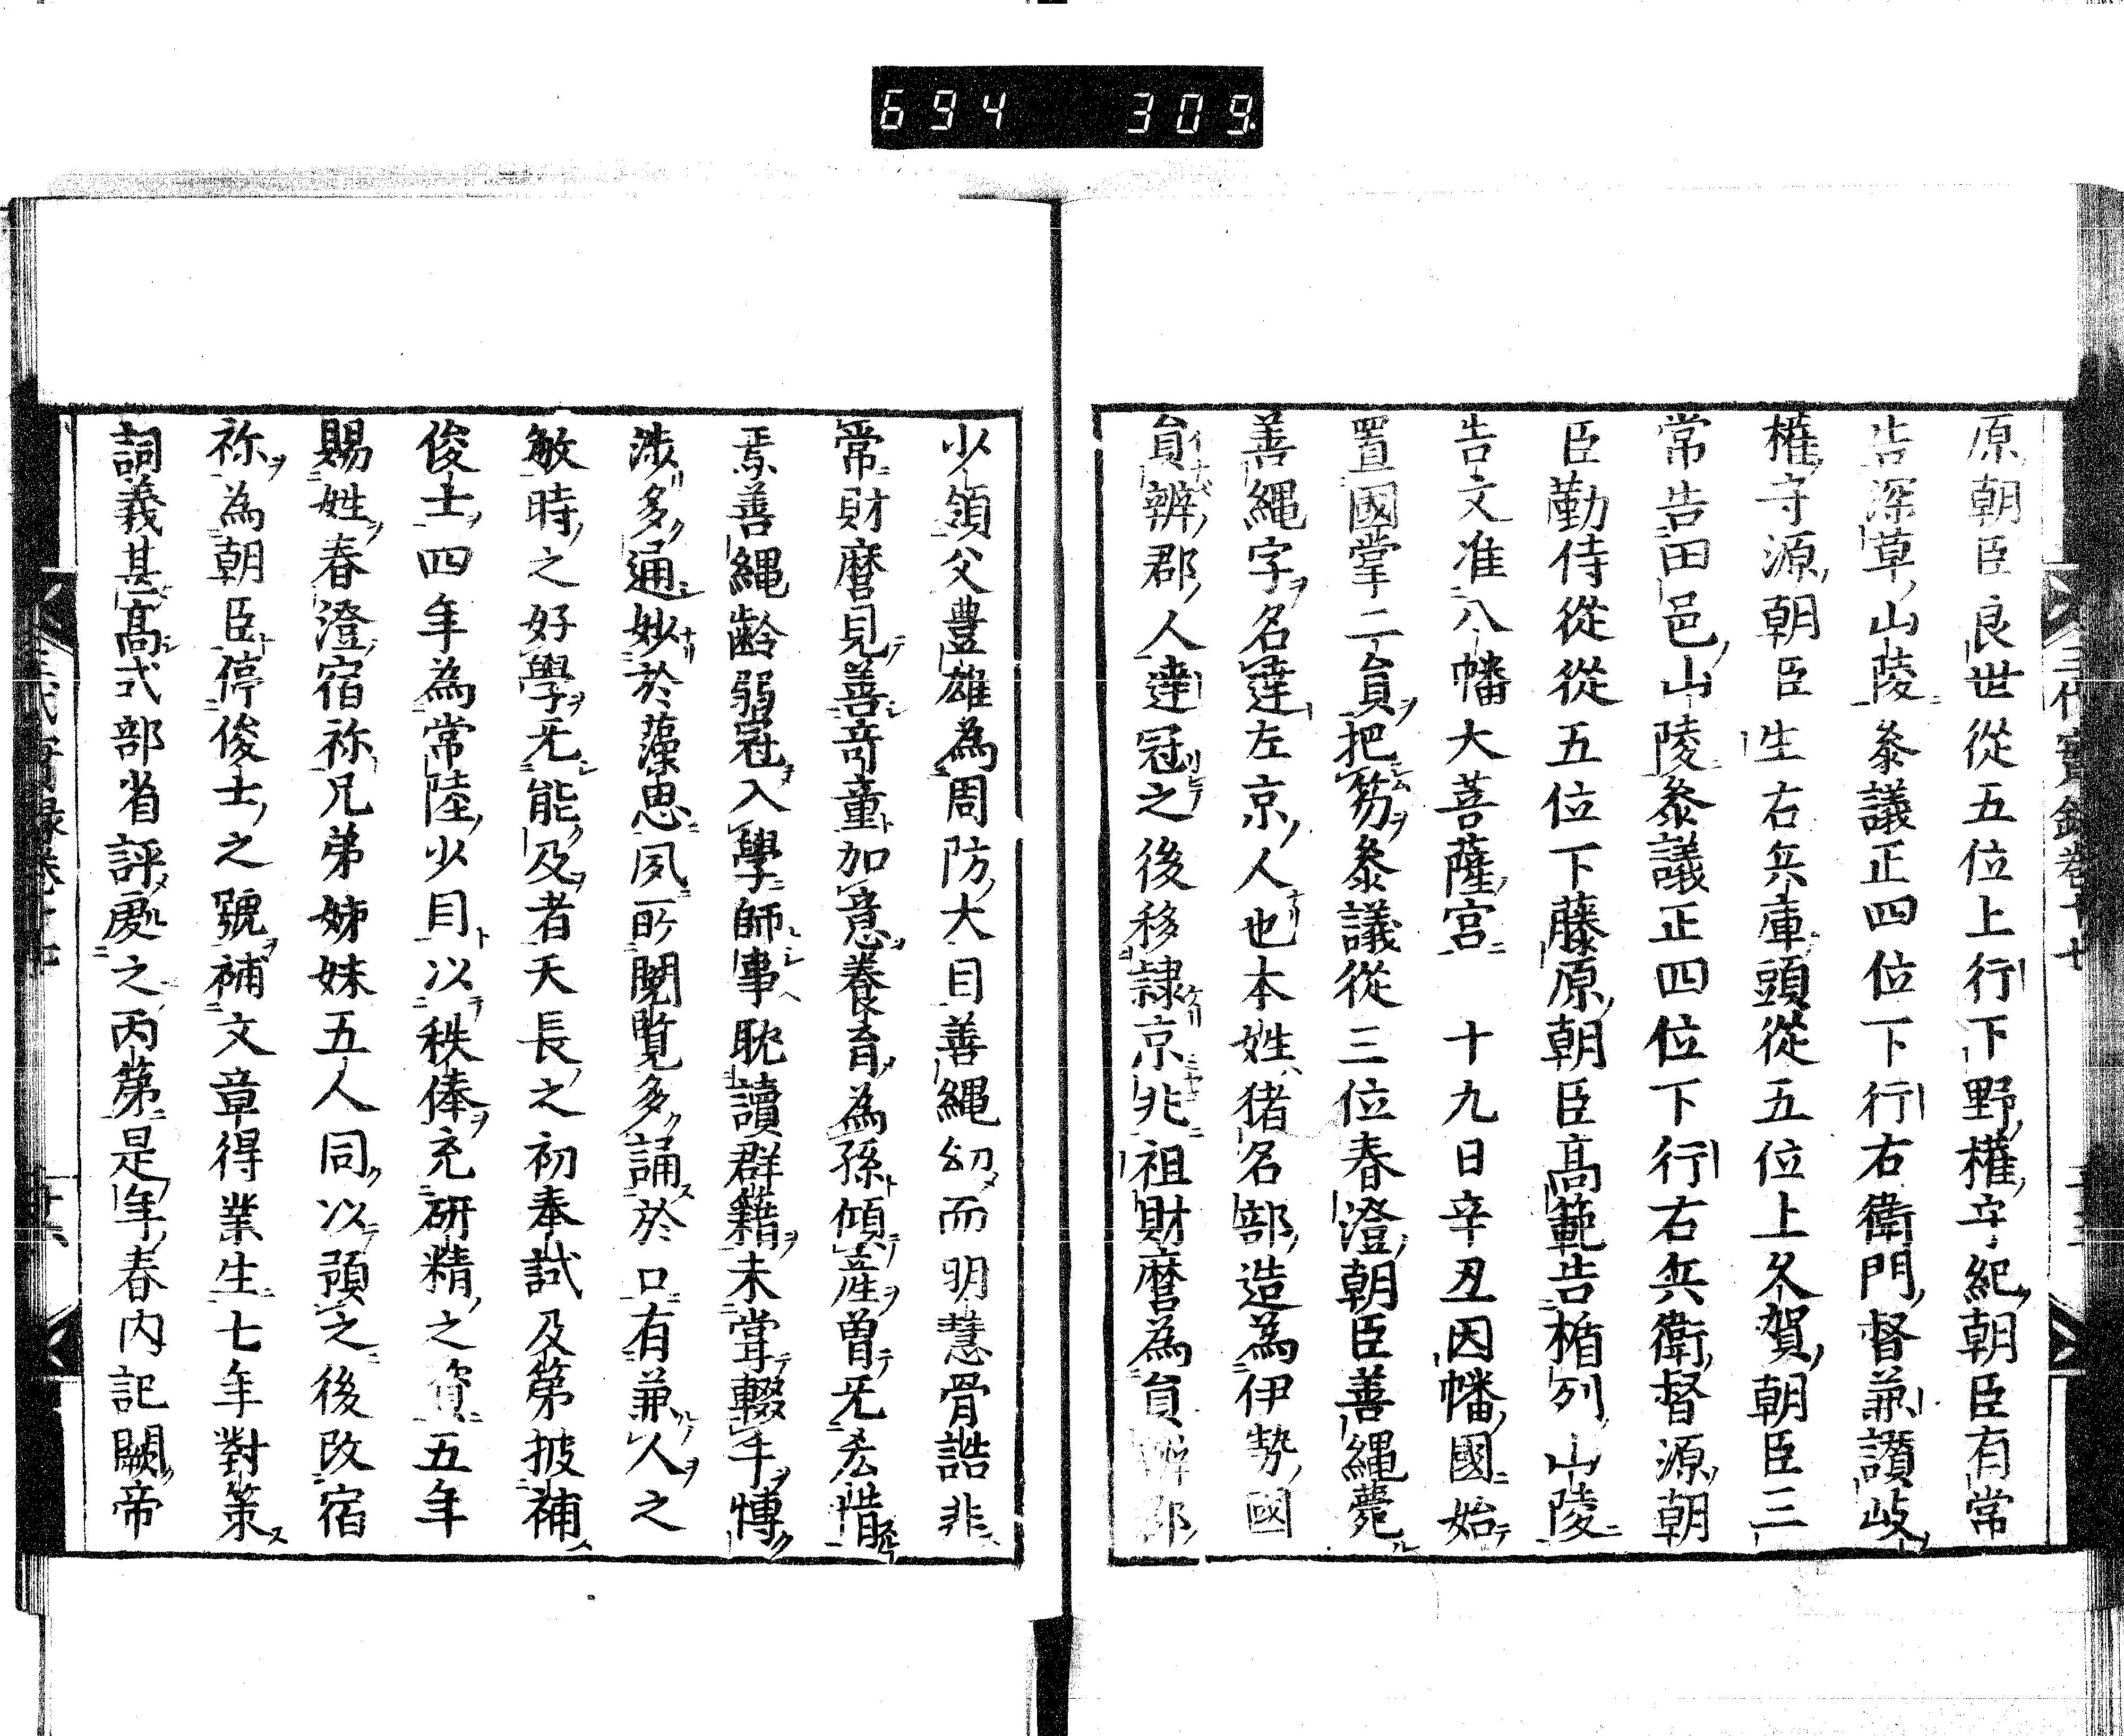 694 309
三代實録卷十七
原朝臣良世從五位上行下野權守紀朝臣有常
告深草山陵參議正四位下行右衛門督兼讃岐
權守源朝臣生右兵庫頭從五位上久賀朝臣三
常告田邑山陵參議正四位下行右兵衛督源朝
臣勤侍從從五位下藤原朝臣高範告楯列山陵
告文准八幡大菩薩宮 十九日辛丑因幡國始
置國掌二員把笏參議從三位春澄朝臣善繩薨
善繩字名達左京人也本姓猪名部造為伊勢國
員辨郡人達冠之後移隷京兆祖財麿為員辨郡
少領父豊雄為周防大目善繩幼而明慧骨誥非
常財麿見善奇童加意養育為孫傾產曾无忩惜
焉善繩齡弱冠入學師事耽讀群籍未甞輟手慱
渉多通妙於藻思夙所閲覧多誦於口有兼人之
敏時之好學无能及者天長之初奉試及第披補
俊士四年為常陸少目以秩俸充研精之資五年
賜姓春澄宿祢兄弟姊妹五人同以預之後改宿
祢為朝臣停俊士之號補文章得業生七年對策
詞義甚高式部省評處之丙第是年春内記闕帝